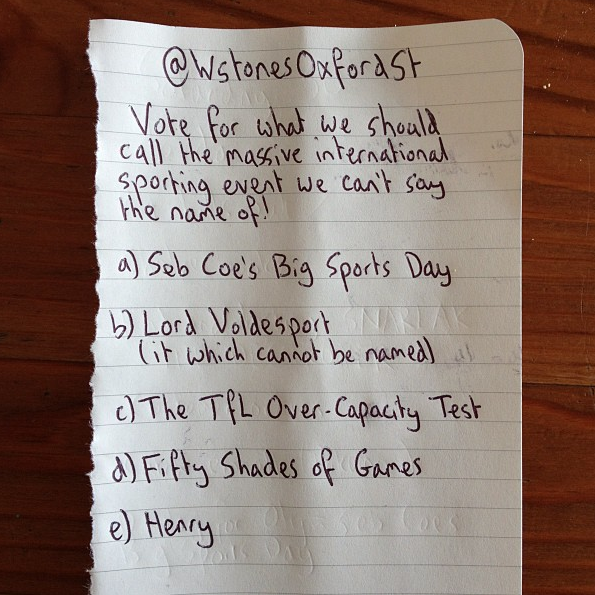 @WstonesOxfordSt
Vote for what we should
call the massive international
sporting event we can't say
the name of!
a) Seb Coe's Big Sports Day
b) Lord Voldesport
(it which cannot be named)
c) The TfL Over-Capacity Test
d) Fifty Shades of Games
e) Henry